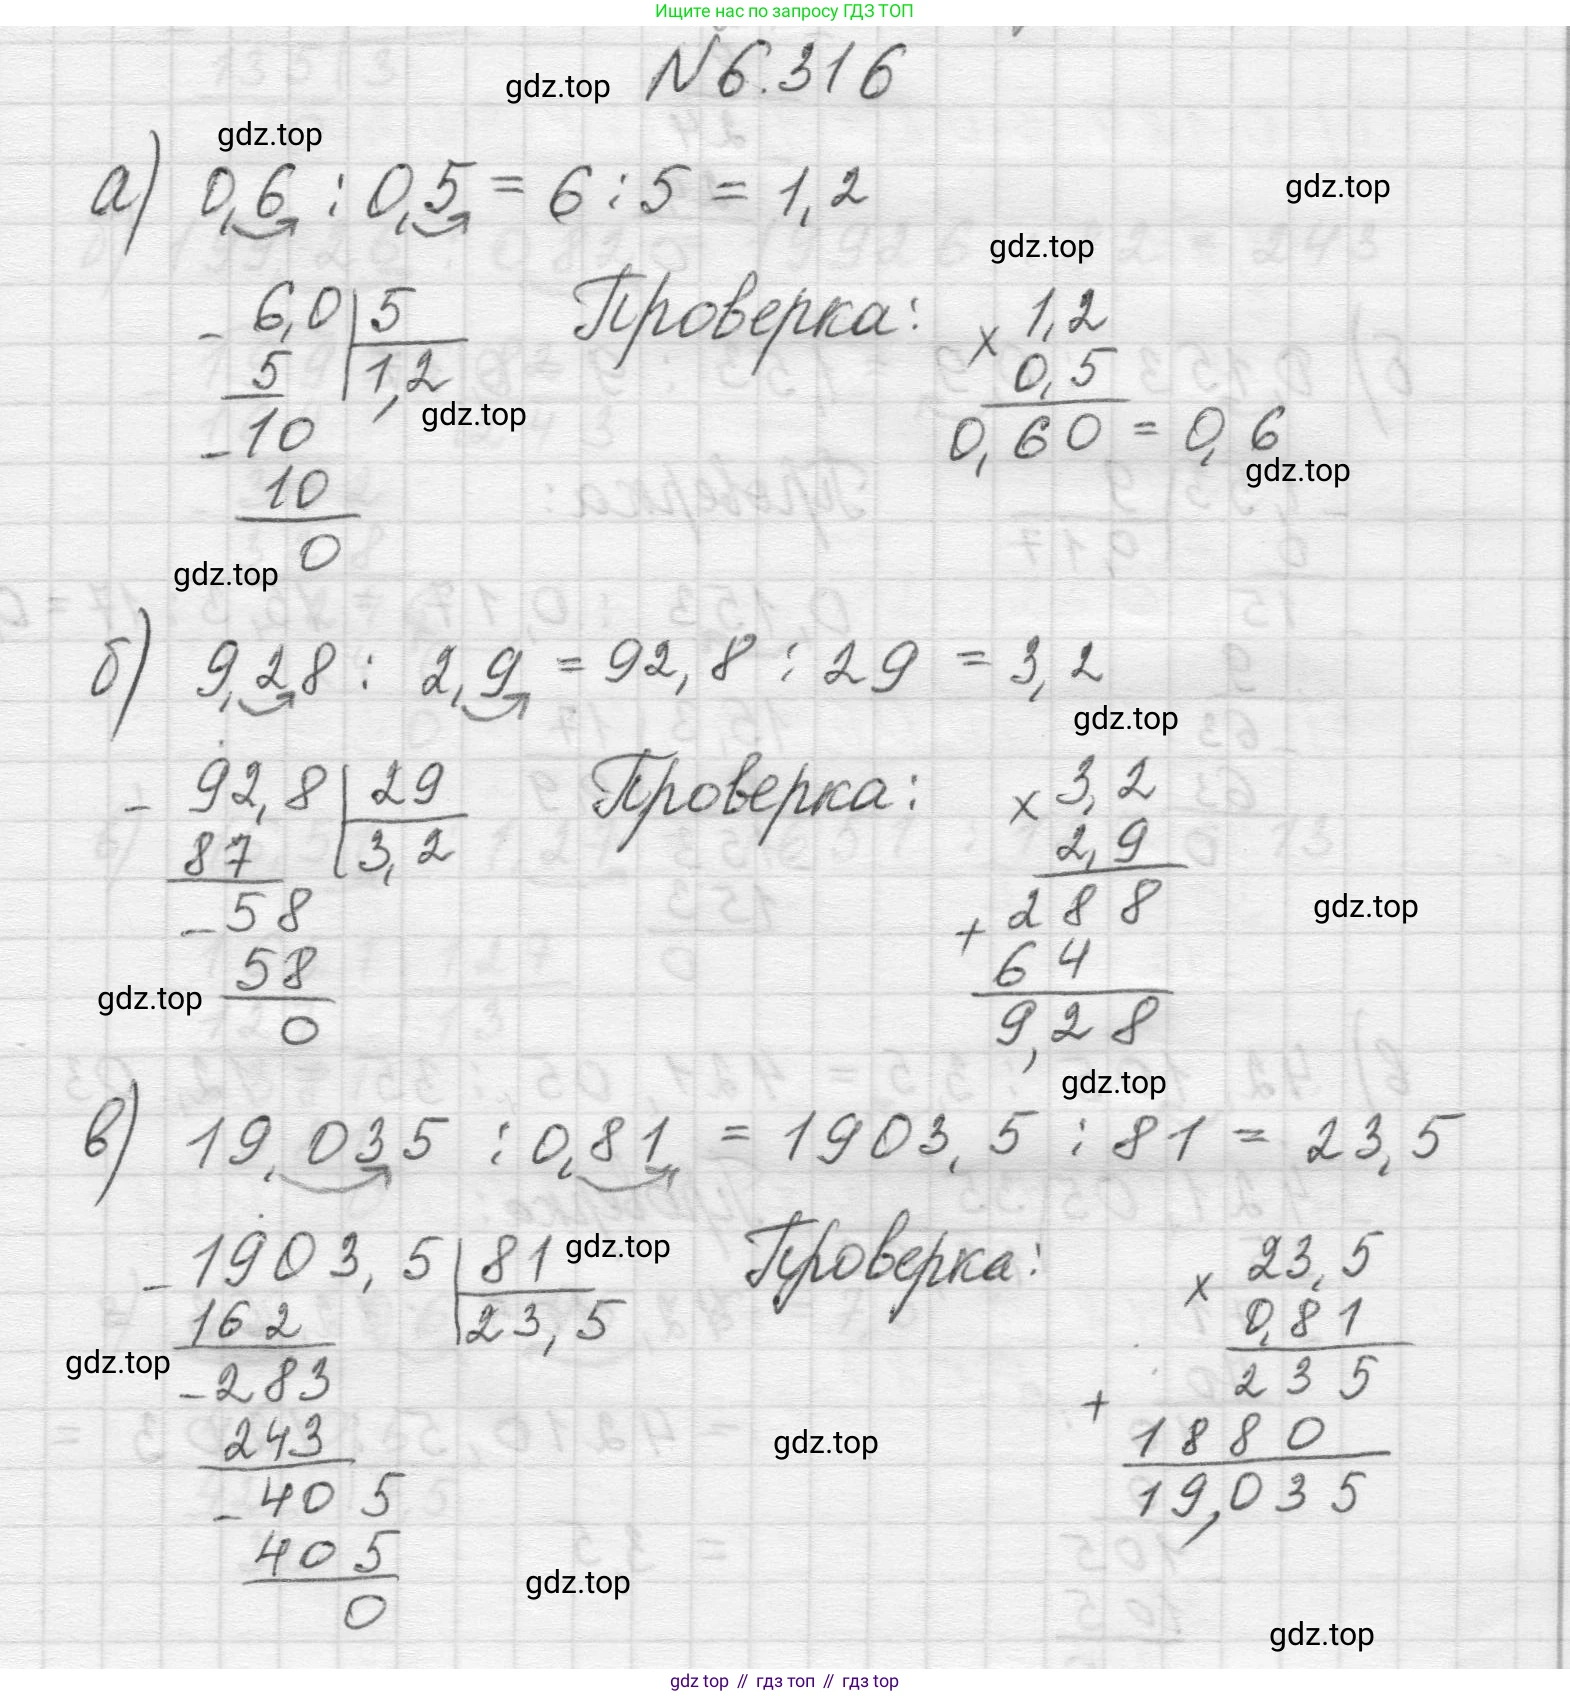 Ищите нас по запросу ГДЗ ТОП
№6.316
gdz.top
gdz.top
а) 0,6 : 0,5 = 6 : 5 = 1,2
gdz.top
gdz.top
- 6,0 | 5
5 | 1,2
- 10
10
0
gdz.top
Проверка:
× 1,2
0,5
0,60 = 0,6
gdz.top
gdz.top
б) 9,28 : 2,9 = 92,8 : 29 = 3,2
gdz.top
- 92,8 | 29
87 | 3,2
- 58
58
0
gdz.top
Проверка:
× 3,2
2,9
+ 288
64
9,28
gdz.top
gdz.top
в) 19,035 : 0,81 = 1903,5 : 81 = 23,5
- 1903,5 | 81
162 | 23,5
- 283
243
- 405
405
0
gdz.top
gdz.top
Проверка:
× 23,5
0,81
+ 235
1880
19,035
gdz.top
gdz.top
gdz.top
gdz top // гдз топ // гдз top